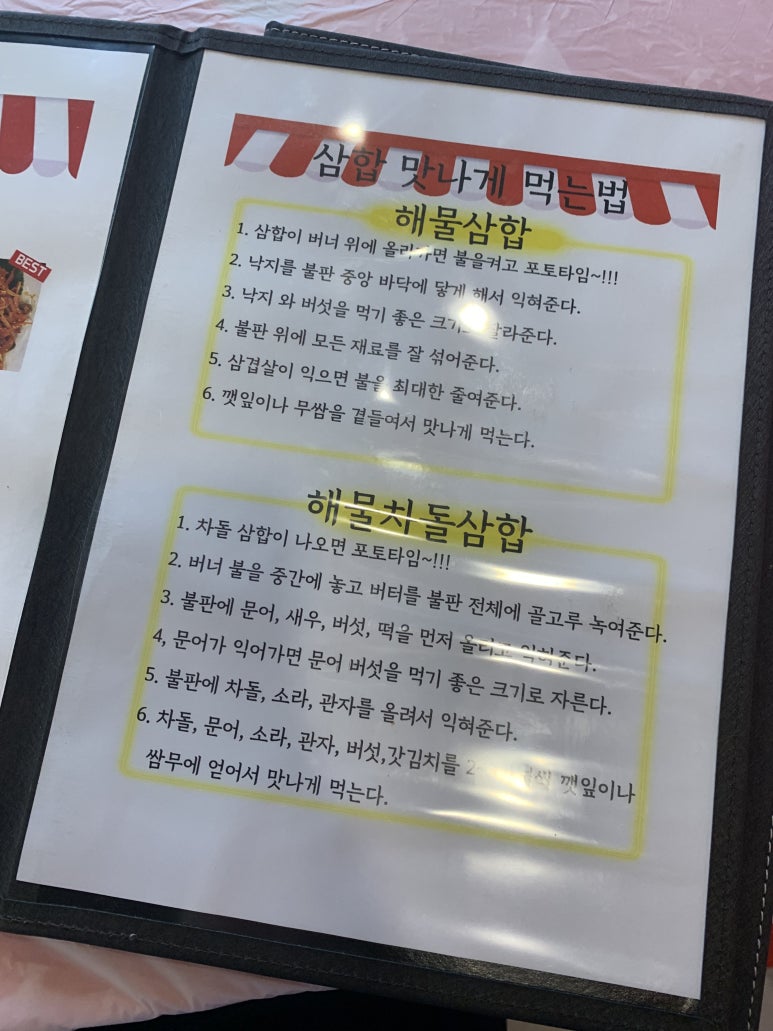 BEST
삼합 맛나게 먹는법
해물삼합
1. 삼합이 버너 위에 올라가면 불을켜고 포토타임~!!!
2. 낙지를 불판 중앙 바닥에 닿게 해서 익혀준다.
3. 낙지 와 버섯을 먹기 좋은 크기로 잘라준다.
4. 불판 위에 모든 재료를 잘 섞어준다.
5. 삼겹살이 익으면 불을 최대한 줄여준다.
6. 깻잎이나 무쌈을 곁들여서 맛나게 먹는다.
해물차돌삼합
1. 차돌 삼합이 나오면 포토타임~!!!
2. 버너 불을 중간에 놓고 버터를 불판 전체에 골고루 녹여준다.
3. 불판에 문어, 새우, 버섯, 떡을 먼저 올리고 익혀준다.
4, 문어가 익어가면 문어 버섯을 먹기 좋은 크기로 자른다.
5. 불판에 차돌, 소라, 관자를 올려서 익혀준다.
6. 차돌, 문어, 소라, 관자, 버섯,갓김치를 깻잎이나
쌈무에 얻어서 맛나게 먹는다.